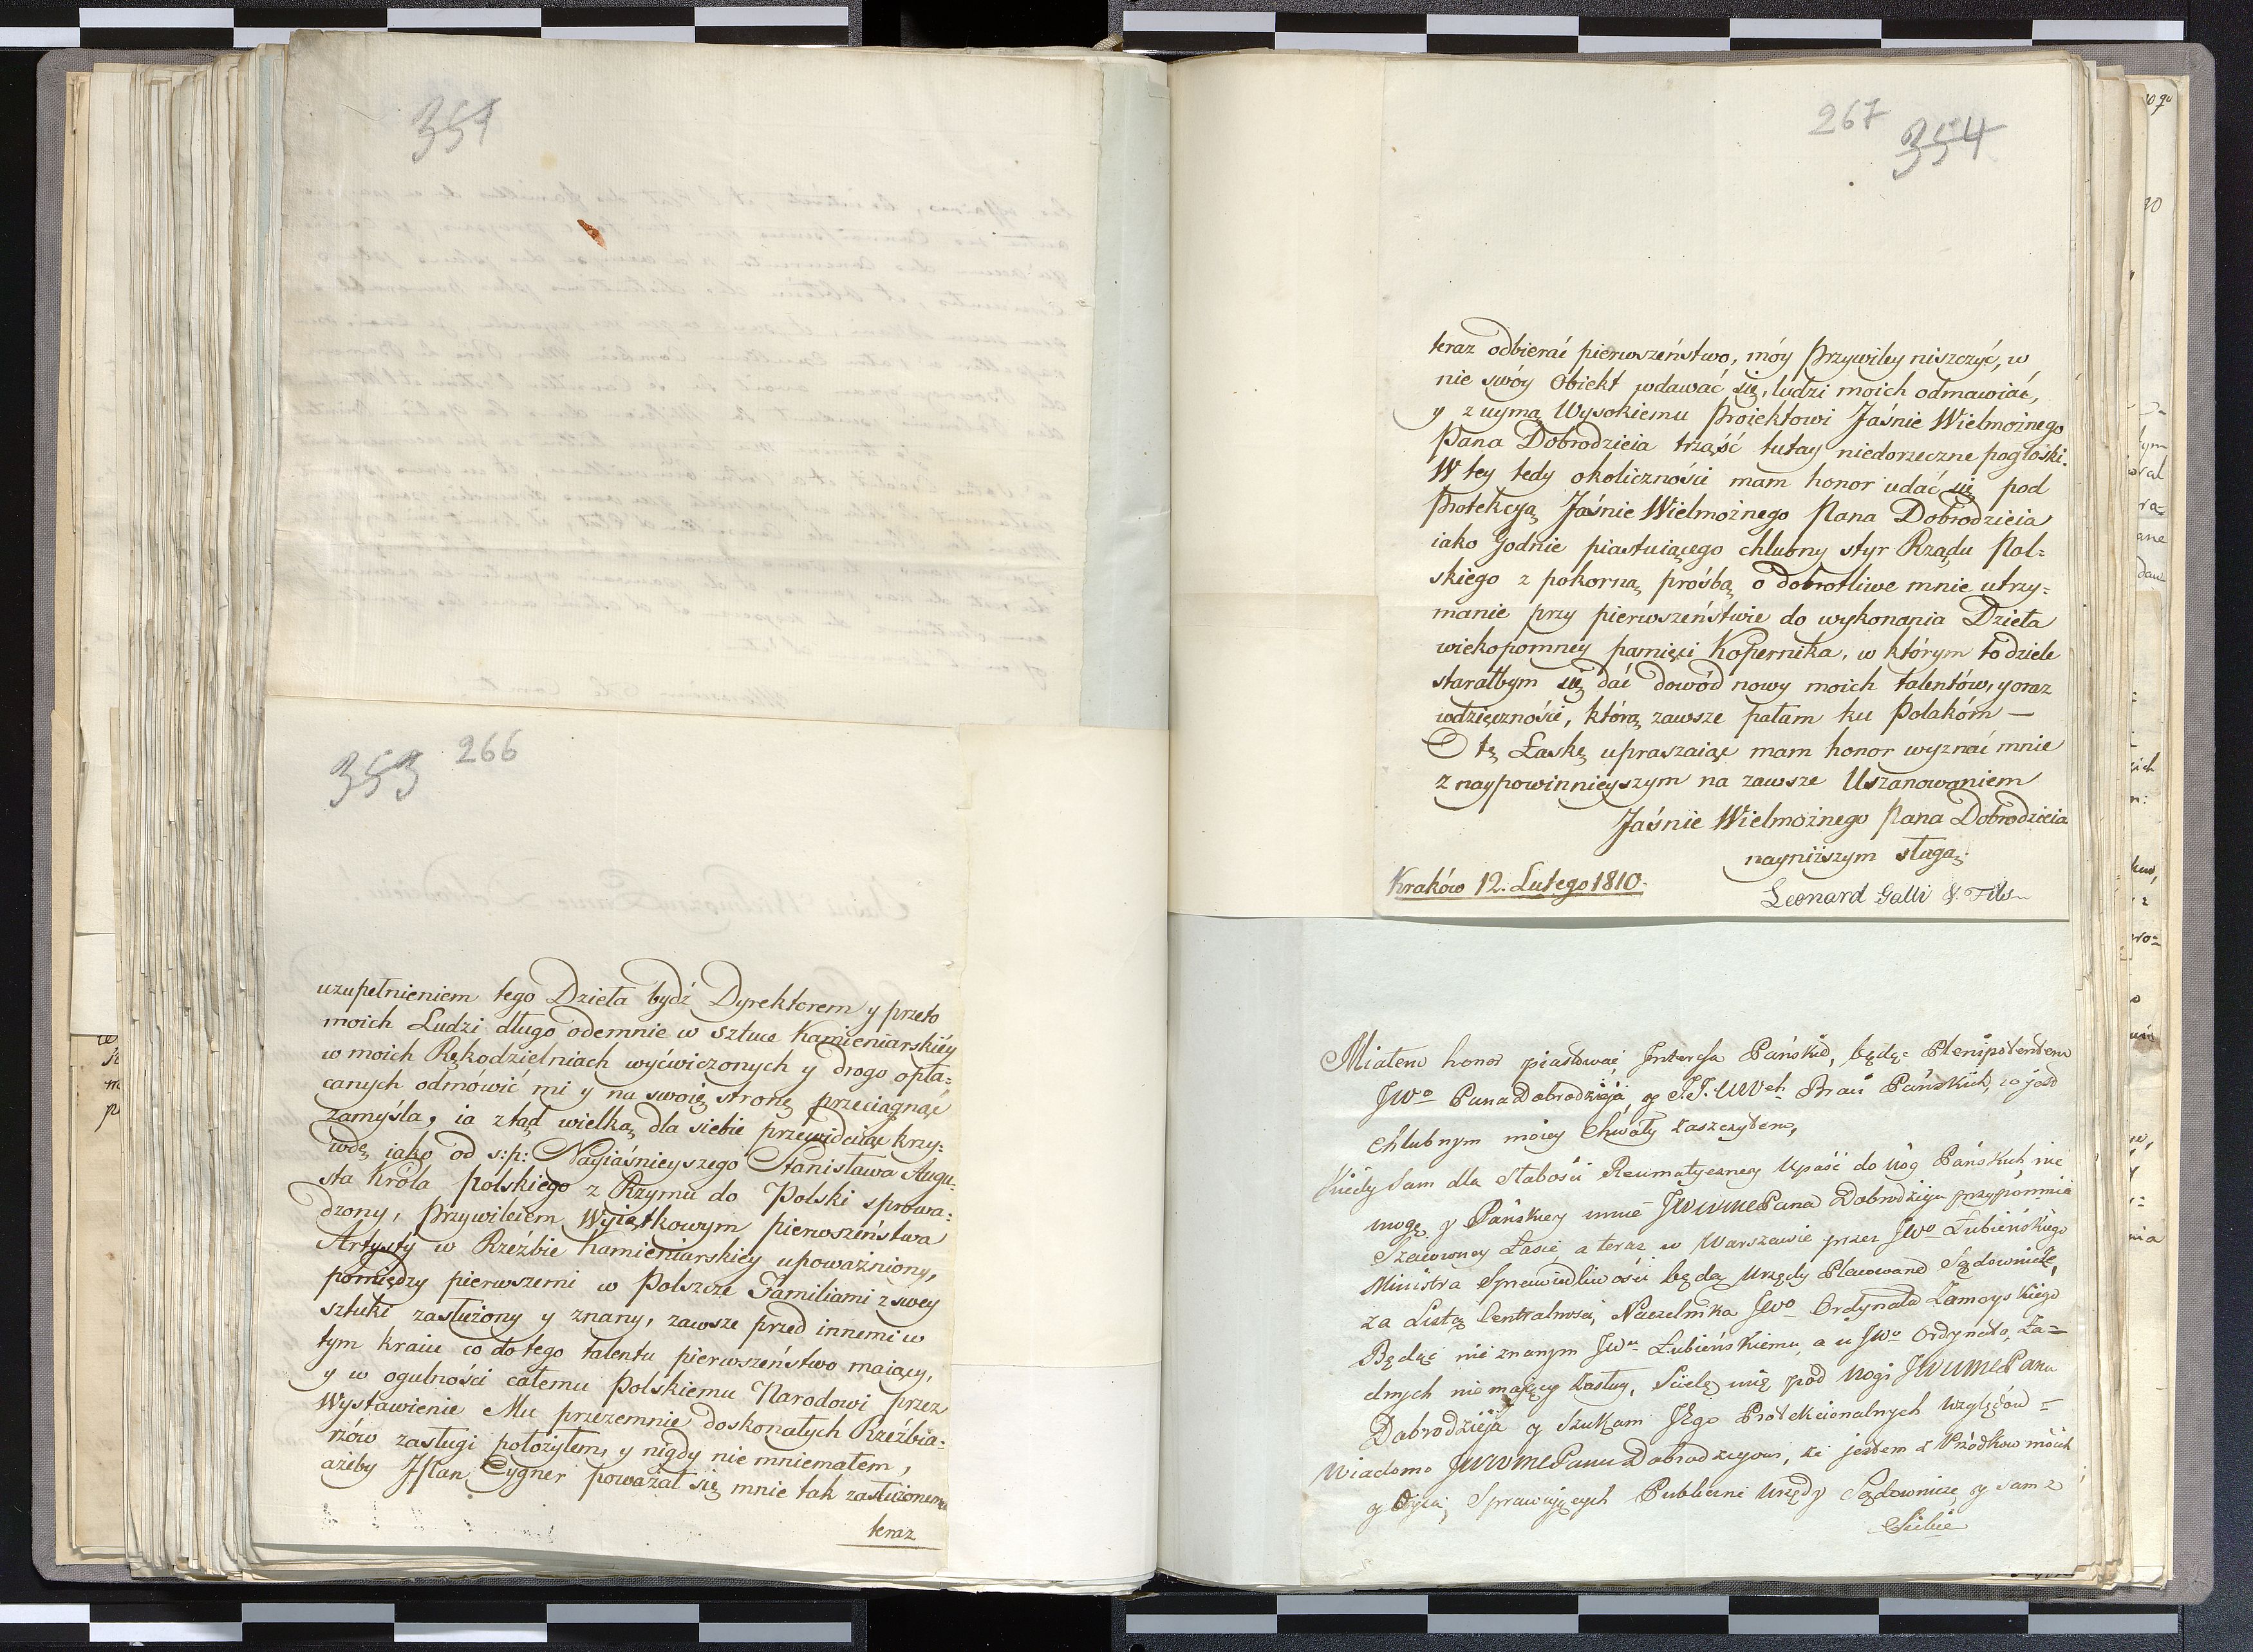 351
353 266
uzupełnieniem tego Dzieła bydź Dyrektorem y przeto
moich Ludzi długo odemnie w sztuce Kamieniarskiéy
w moich Rękodzielniach wyćwiczonych y drogo opła=
canych odmówić mi y na swoię stronę przeciągnąć
zamyśla, ia ztąd wielką dla siebie przewiduiąc krzy=
wdę iako od s:p: Nayiaśnieyszego Stanisława Augu=
sta Króla Polskiego z Rzymu do Polski sprowa=
dzony, Przywileiem Wyiątkowym pierwszeństwa
Artysty w Rzeźbie Kamieniarskiéy upoważniony,
pomiędzy pierwszemi w Polszcze Familiami z swey
sztuki zasłużony y znany, zawsze przed innemi w
tym kraiu co do tego talentu pierwszeństwo maiący,
y w ogulności całemu Polskiemu Narodowi przez
Wystawienie Mu przezemnie doskonałych Rzeźbia=
rzów zasługi położyłem, y nigdy nie mniemałem,
ażeby JPan Cygner poważał się mnie tak zasłużonemu
teraz
267 354
teraz odbierać pierwszeństwo, móy Przywiley niszczyć, w
nie swóy Obiekt wdawać się, ludzi moich odmawiać,
y z uymą Wysokiemu Proiektowi Jaśnie Wielmożnego
Pana Dobrodzieia trząść tutay niedorzeczne pogłoski.
W tey tedy okoliczności mam honor udać się pod
Protekcyą Jaśnie Wielmożnego Pana Dobrodzieia
iako Godnie piastuiącego chlubny styr Rządu Pol=
skiego z pokorną prośbą o dobrotliwe mnie utrzy=
manie przy pierwszeństwie do wykonania Dzieła
wiekopomney pamięci Kopernika, w którym to dziele
starałbym się dać dowód nowy moich talentów, y oraz
wdzięczności, którą zawsze pałam ku Polakóm —
O tę Łaskę upraszaiąc mam honor wyznać mnie
z naypowinnieyszym na zawsze Uszanowaniem
Jaśnie Wielmożnego Pana Dobrodzieia
nayniższym sługą
Kraków 12. Lutego 1810.
Leonard Galli & Fils
Miałem honor piastować Interesa Pańskie, będąc Plenipotentem
JWo Pana Dobrodzieja, y J.J.WWch Braci Pańskich, co jest
Chlubnym moiey Chwały zaszczytem,
Kiedy sam dla słabości Reumatyczney Upaść do nóg Pańskich nie
mogę y Pańskiey mnie JWWMCPana Dobrodzieja przypomnieć
Szacowney Łasce, a teraz w Warszawie przez JWo Łubieńskiego
Ministra Sprawiedliwości będą Urzędy Placowane Sądownicze,
za Listą Centralności, Naczelnika JWo Ordynata Zamoyskiego
Będąc nie znanym JWu Łubieńskiemu, a u JWo Ordynata, Ża=
dnych nie mający zasług, Ścielę się pod Nogi JWWMCPana
Dobrodzieja y Szukam Jego Protekcionalnych Względów =
Wiadomo JWWMCPanu Dobrodziejowi, że jestem z Przodków moich
y Oyca, Sprawujących Publiczne Urzędy Sądownicze y sam z
Siebie